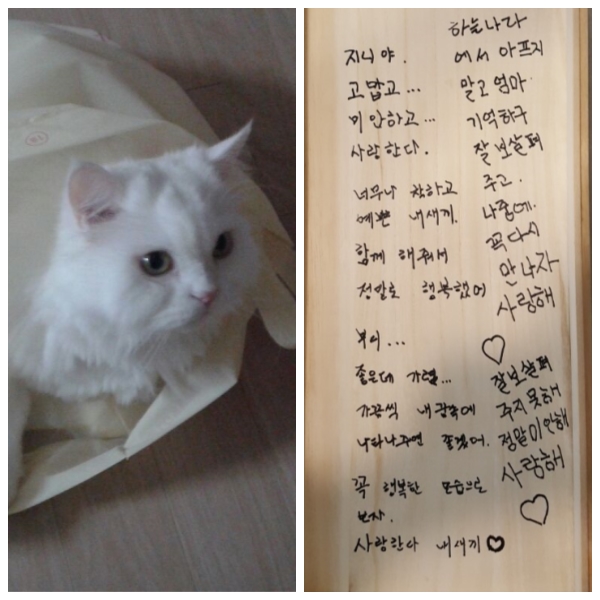 지니야.
고맙고...
미안하고...
사랑한다.
너무나 착하고
예쁜 내새끼.
함께 해줘서
정말로 행복했어
부디...
좋은데 가렴...
가끔씩 내꿈속에
나타나주면 좋겠어.
꼭 행복한 모습으로
보자.
사랑한다 내새끼
하늘나라
에서 아프지
말고 엄마
기억하구
잘 보살펴
주고.
나중에.
꼭 다시
만나자
사랑해
잘보살펴
주지 못해
정말미안해
사랑해